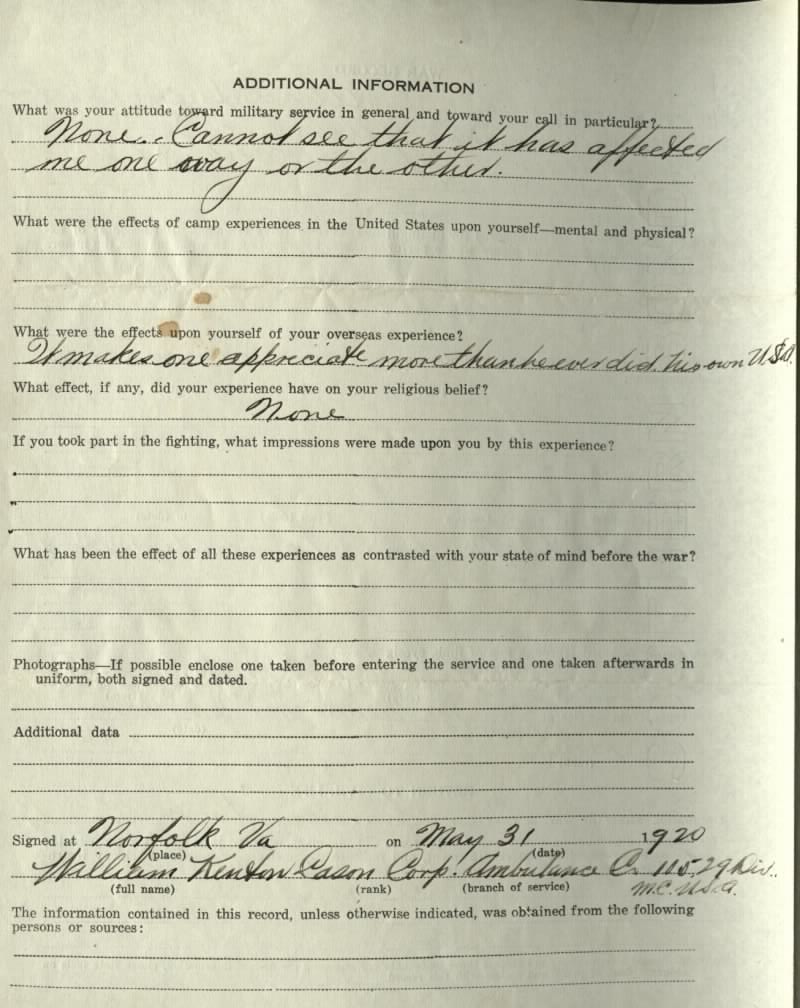 ADDITIONAL INFORMATION
What was your attitude toward military service in general and toward your call in particular?
None. Cannot see that it has affected
me one way or the other.
What were the effects of camp experiences in the United States upon yourself—mental and physical?
What were the effects upon yourself of your overseas experience?
It makes one appreciate more than he ever did his own U.S.A.
What effect, if any, did your experience have on your religious belief?
None
If you took part in the fighting, what impressions were made upon you by this experience?
What has been the effect of all these experiences as contrasted with your state of mind before the war?
Photographs—If possible enclose one taken before entering the service and one taken afterwards in
uniform, both signed and dated.
Additional data
Signed at Norfolk Va on May 31 1920
(place) (date)
William Kenton Cason Corp. Ambulance C. 115, 29 Div.
(full name) (rank) (branch of service) M.C. U.S.A.
The information contained in this record, unless otherwise indicated, was obtained from the following
persons or sources: